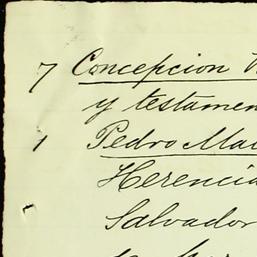 7 Concepcion
y testamen
1 Pedro Mac
Herencia
Salvador